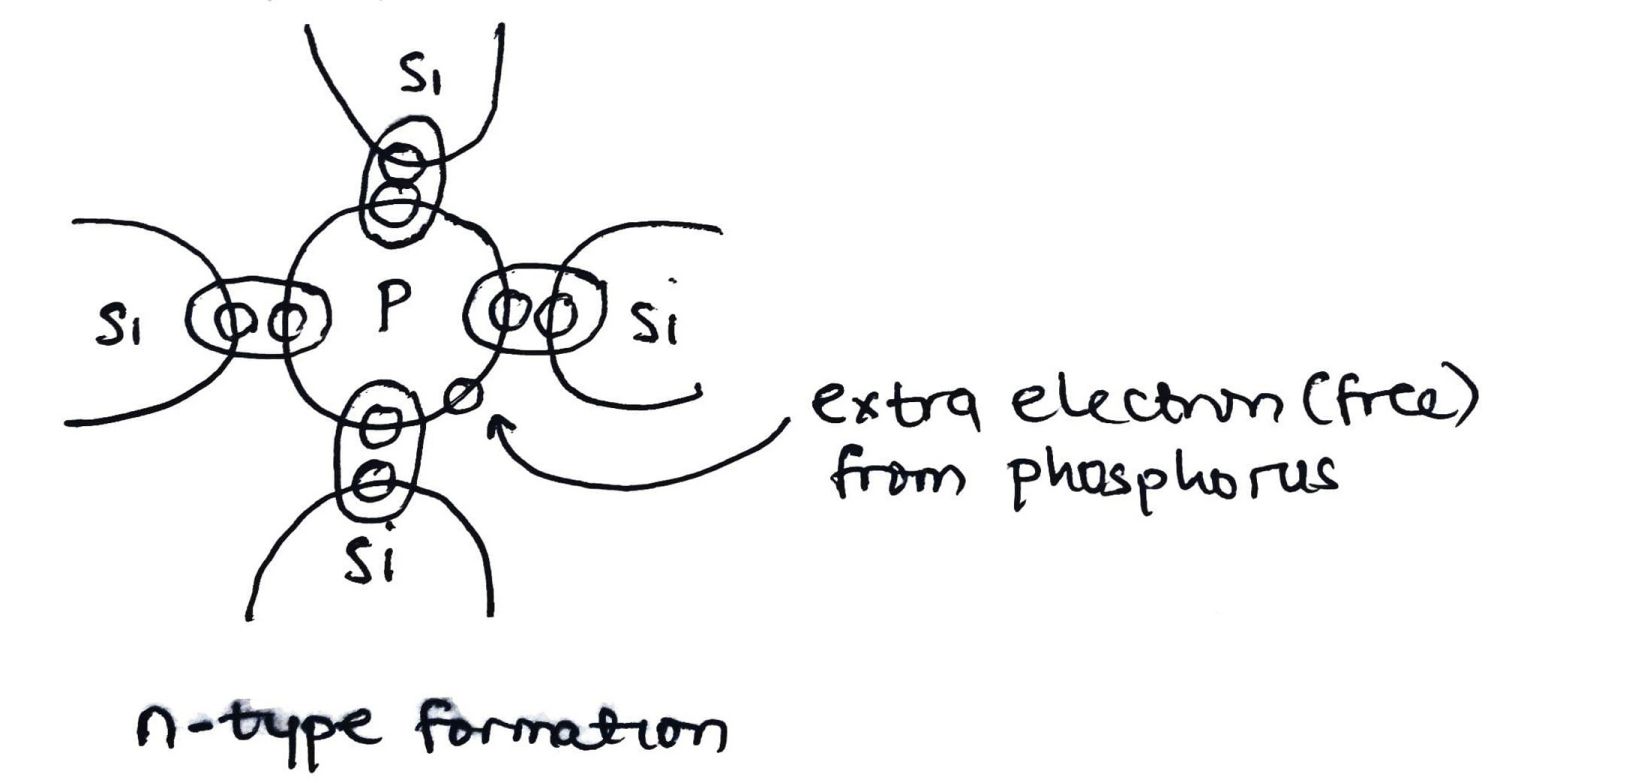 Si
Si
P
Si
extra electron (free)
from phosphorus
Si
n-type formation